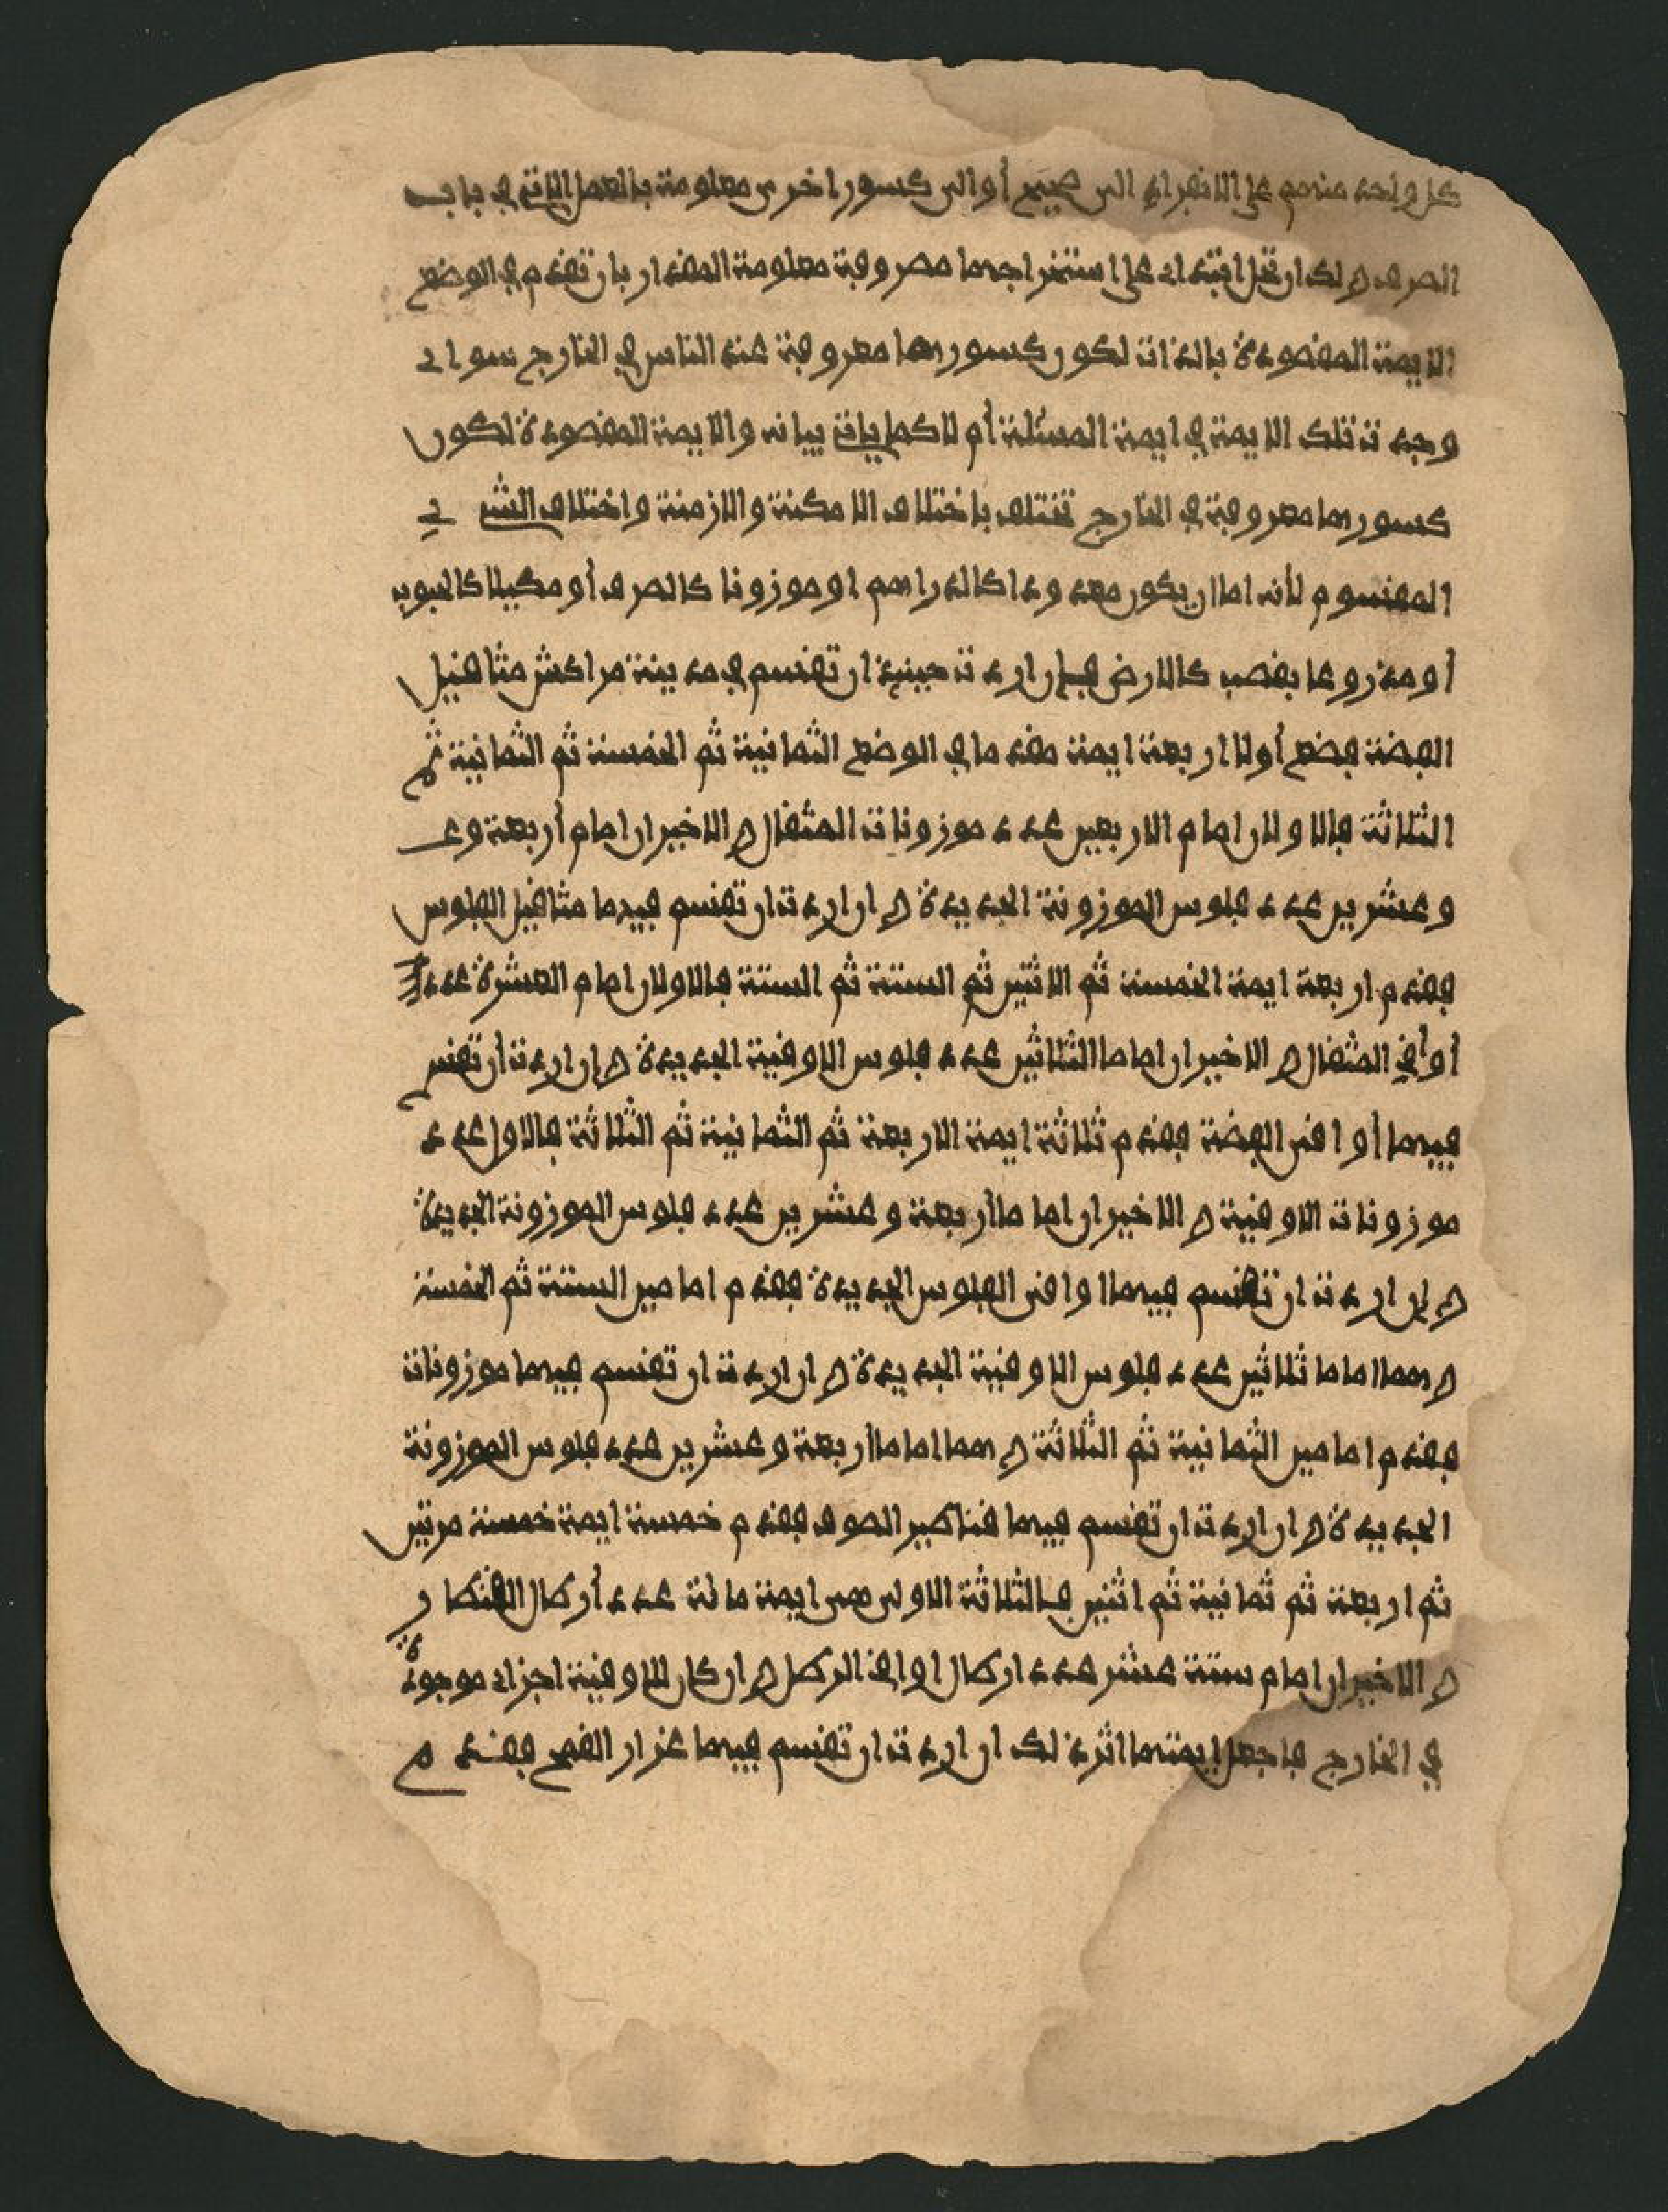 كل واحد منهم على الانفراد الى صحيح أو الى كسور اخرى معلومة بالعمل الاتي في باب
الصرف و لك ان قبل ابتداء على استخراجها مصروفة معلومة المقدار بان تقدم في الوضع
الايمة المقصودة بالذات لكون كسورها معروفة عند الناس في الخارج سواء
وجدت تلك الايمة في ايمة المسئلة أم لا كما ياتي بيانه والايمة المقصودة لكون
كسورها معروفة في الخارج تختلف باختلاف الامكنة والازمنة واختلاف الشيء
المقسوم لأنه اما ان يكون معدودا كالدراهم او موزونا كالصرف أو مكيلا كالحبوب
أو مذروعا بقصب كالارض فإن اردت حينيذ ان تقسم في مدينة مراكش مثاقيل
الفضة فضع أولا اربعة ايمة مقدما في الوضع الثمانية ثم الخمسة ثم الثمانية ثم
الثلاثة فالاولان امام الاربعين عدد موزونات المثقال و الاخيران امام أربعة وعـ
وعشرين عدد فلوس الموزونة الجديدة و ان اردت ان تقسم فيها مثاقيل الفلوس
فقدم اربعة ايمة الخمسة ثم الاثنين ثم الستة ثم الستة فالاولان امام العشرة عدد
أواقي المثقال و الاخيران اماما الثلاثين عدد فلوس الاوقية الجديدة و إن اردت أن تقسم
فيها أواقى الفضة فقدم ثلاثة ايمة الاربعة ثم الثمانية ثم الثلاثة فالاول عدد
موزونات الاوقية و الاخيران اماما أربعة وعشرين عدد فلوس الموزونة الجديدة
و إن اردت ان تقسم فيها اواقى الفلوس الجديدة فقدم امامين الستة ثم الخمسة
و هما اماما ثلاثين عدد فلوس الاوقية الجديدة و ان اردت ان تقسم فيها موزونات
فقدم امامين الثمانية ثم الثلاثة و هما اماما أربعة وعشرين عدد فلوس الموزونة
الجديدة و ان اردت ان تقسم فيها قناطير الصوف فقدم خمسة ايمة خمسة مرتين
ثم اربعة ثم ثمانية ثم اثنين فـالثلاثة الاولى هى ايمة مائة عدد أرطال القنطار
و الاخيران امام ستة عشر عدد ارطال اواقي الرطل و ان كان للاوقية اجزاء موجودة
في الخارج فاجعل ايمتها اثر ذلك ان اردت ان تقسم فيها غرار القمح فقدم